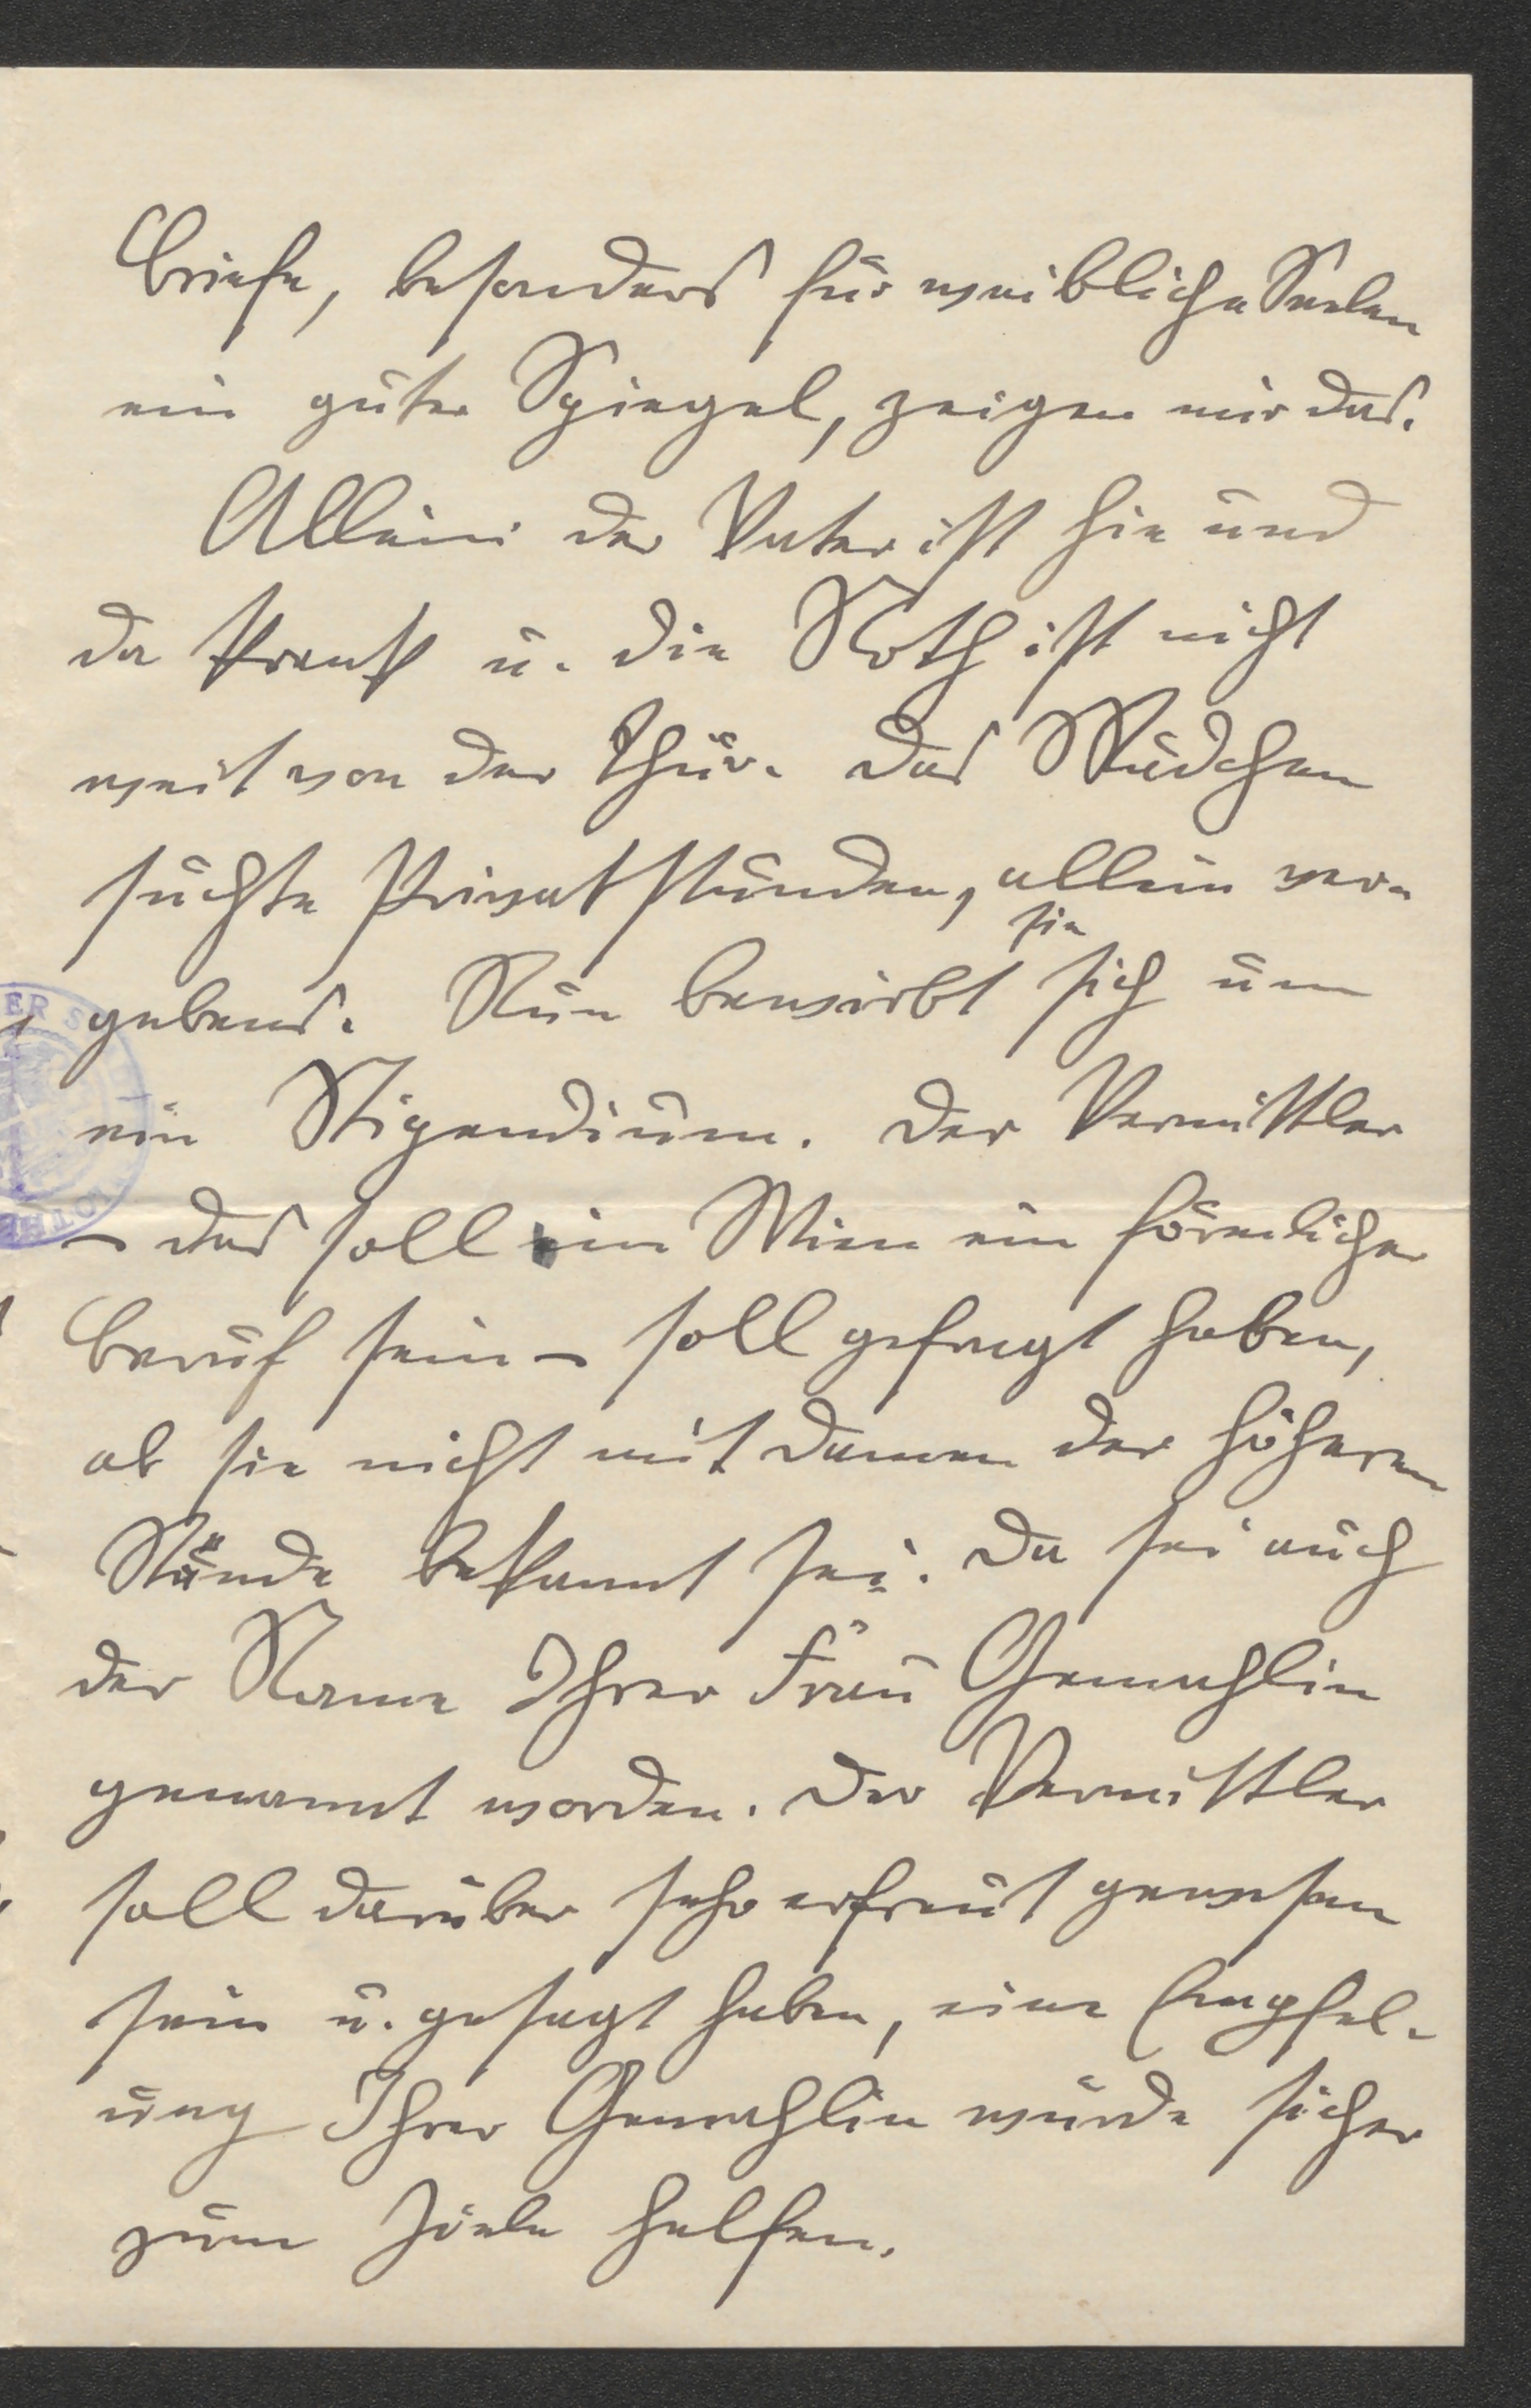 Briefe, besonders für weibliche Seelen
ein guter Spiegel, zeigen mir das.
Allein der Vater ist hie und
da krank u. die Noth ist nicht
weit von der Thür. Das Mädchen
suchte Privatstunden, allein ver-
sie
gebens. Nun bewirbt sich um
ein Stipendium. Der Vermittler
– das soll in Wien ein förmlicher
Beruf sein – soll gefragt haben,
ob sie nicht mit Damen der höheren
Stände bekannt sei. Da sei auch
der Name Ihrer Frau Gemahlin
genannt worden. Der Vermittler
soll darüber sehr erfreut gewesen
sein u. gesagt haben, eine Empfel-
ung Ihrer Gemahlin würde sicher
zum Ziele helfen.